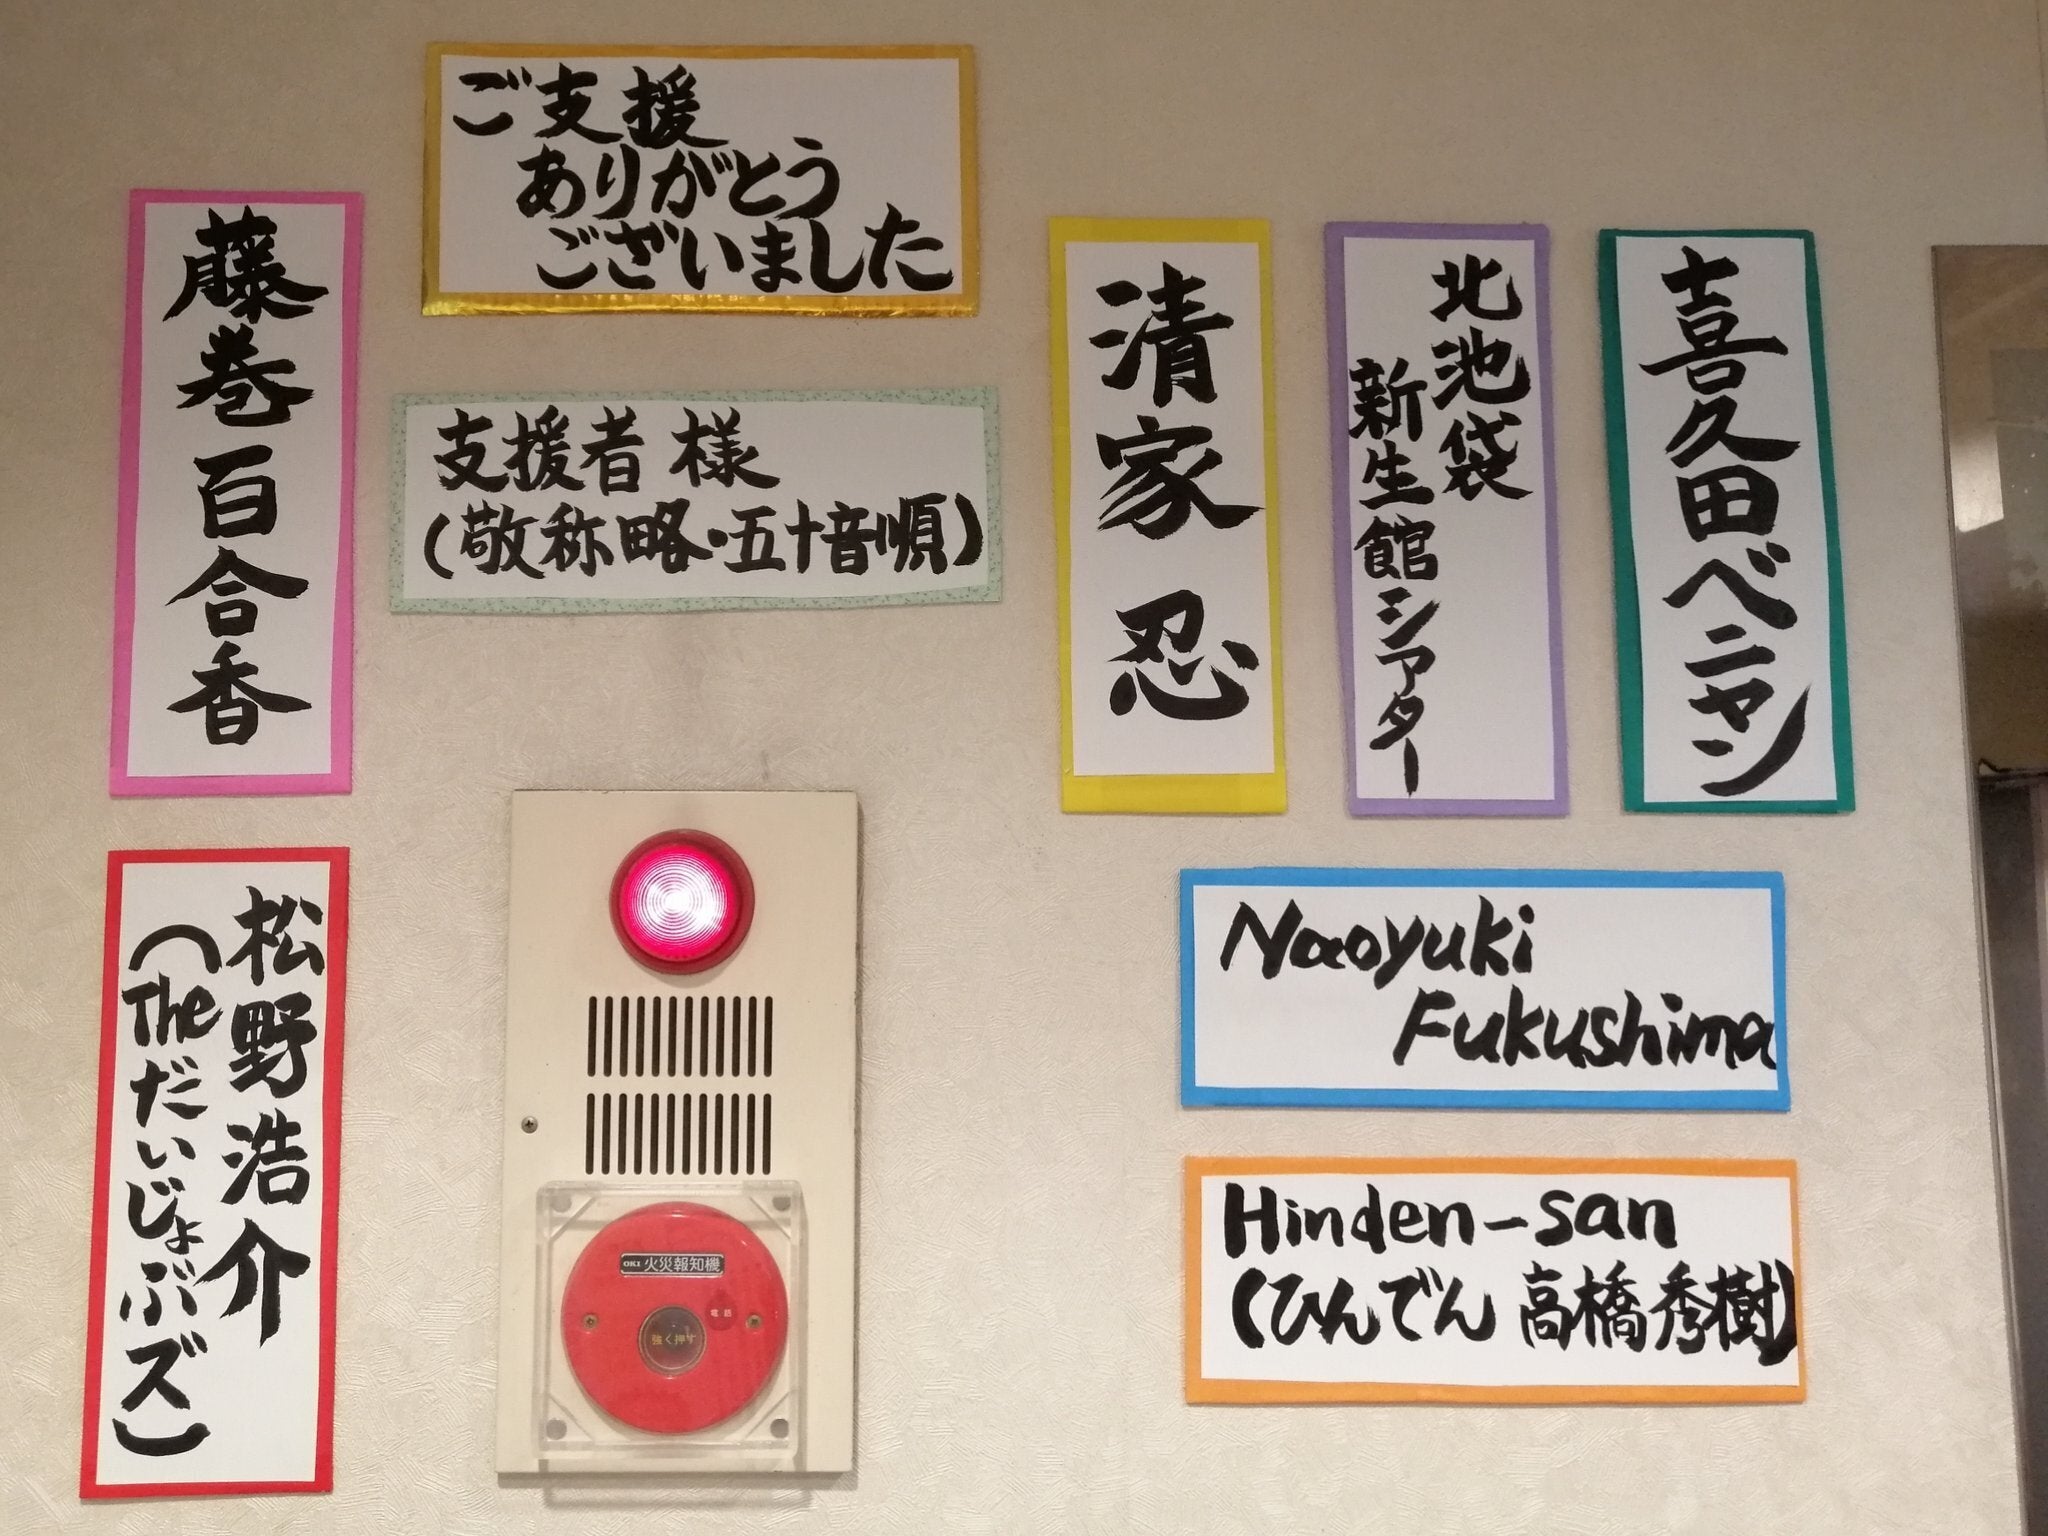 ご支援
ありがとう
ございました
支援者 様
(敬称略・五十音順)
喜久田ベニヤン
北池袋
新生館シアター
清家 忍
Naoyuki
Fukushima
Hinden-san
(ひんでん 高橋秀樹)
藤巻百合香
松野浩介
(Theだいじょぶズ)
OKI 火災報知機
電話
強く押す